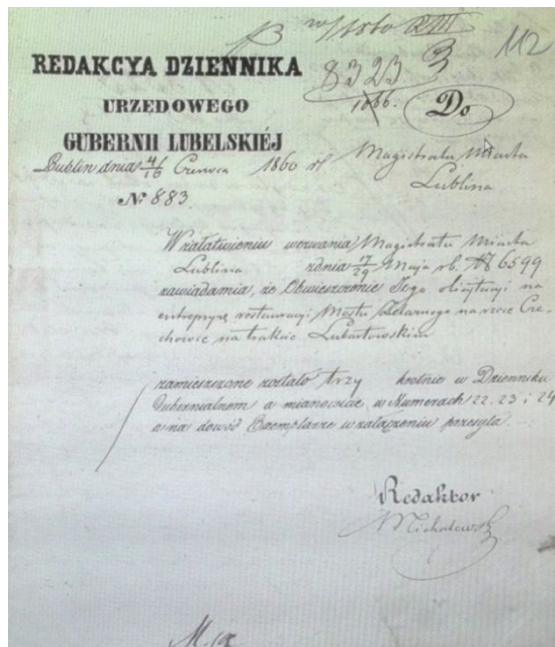 112
8323
REDAKCYA DZIENNIKA
URZĘDOWEGO
GUBERNII LUBELSKIÉJ
Do
Lublin dnia 4/16 Czerwca 1860 r
Magistratu Miasta
Lublina
№ 883.
W załatwieniu wezwania Magistratu Miasta
Lublina z dnia 17/29 Maja rb. № 6599
zawiadamia, że Obwieszczenie Jego o licytacyi na
entrepryzę restauracyi Mostu żelaznego na rzece Cze-
chówce na trakcie Lubartowskim
zamieszczone zostało trzy krotnie w Dzienniku
Gubernialnem a mianowicie, w Numerach 22. 23 i 24
a na dowód Exemplarze w załączeniu przesyła.
Redaktor